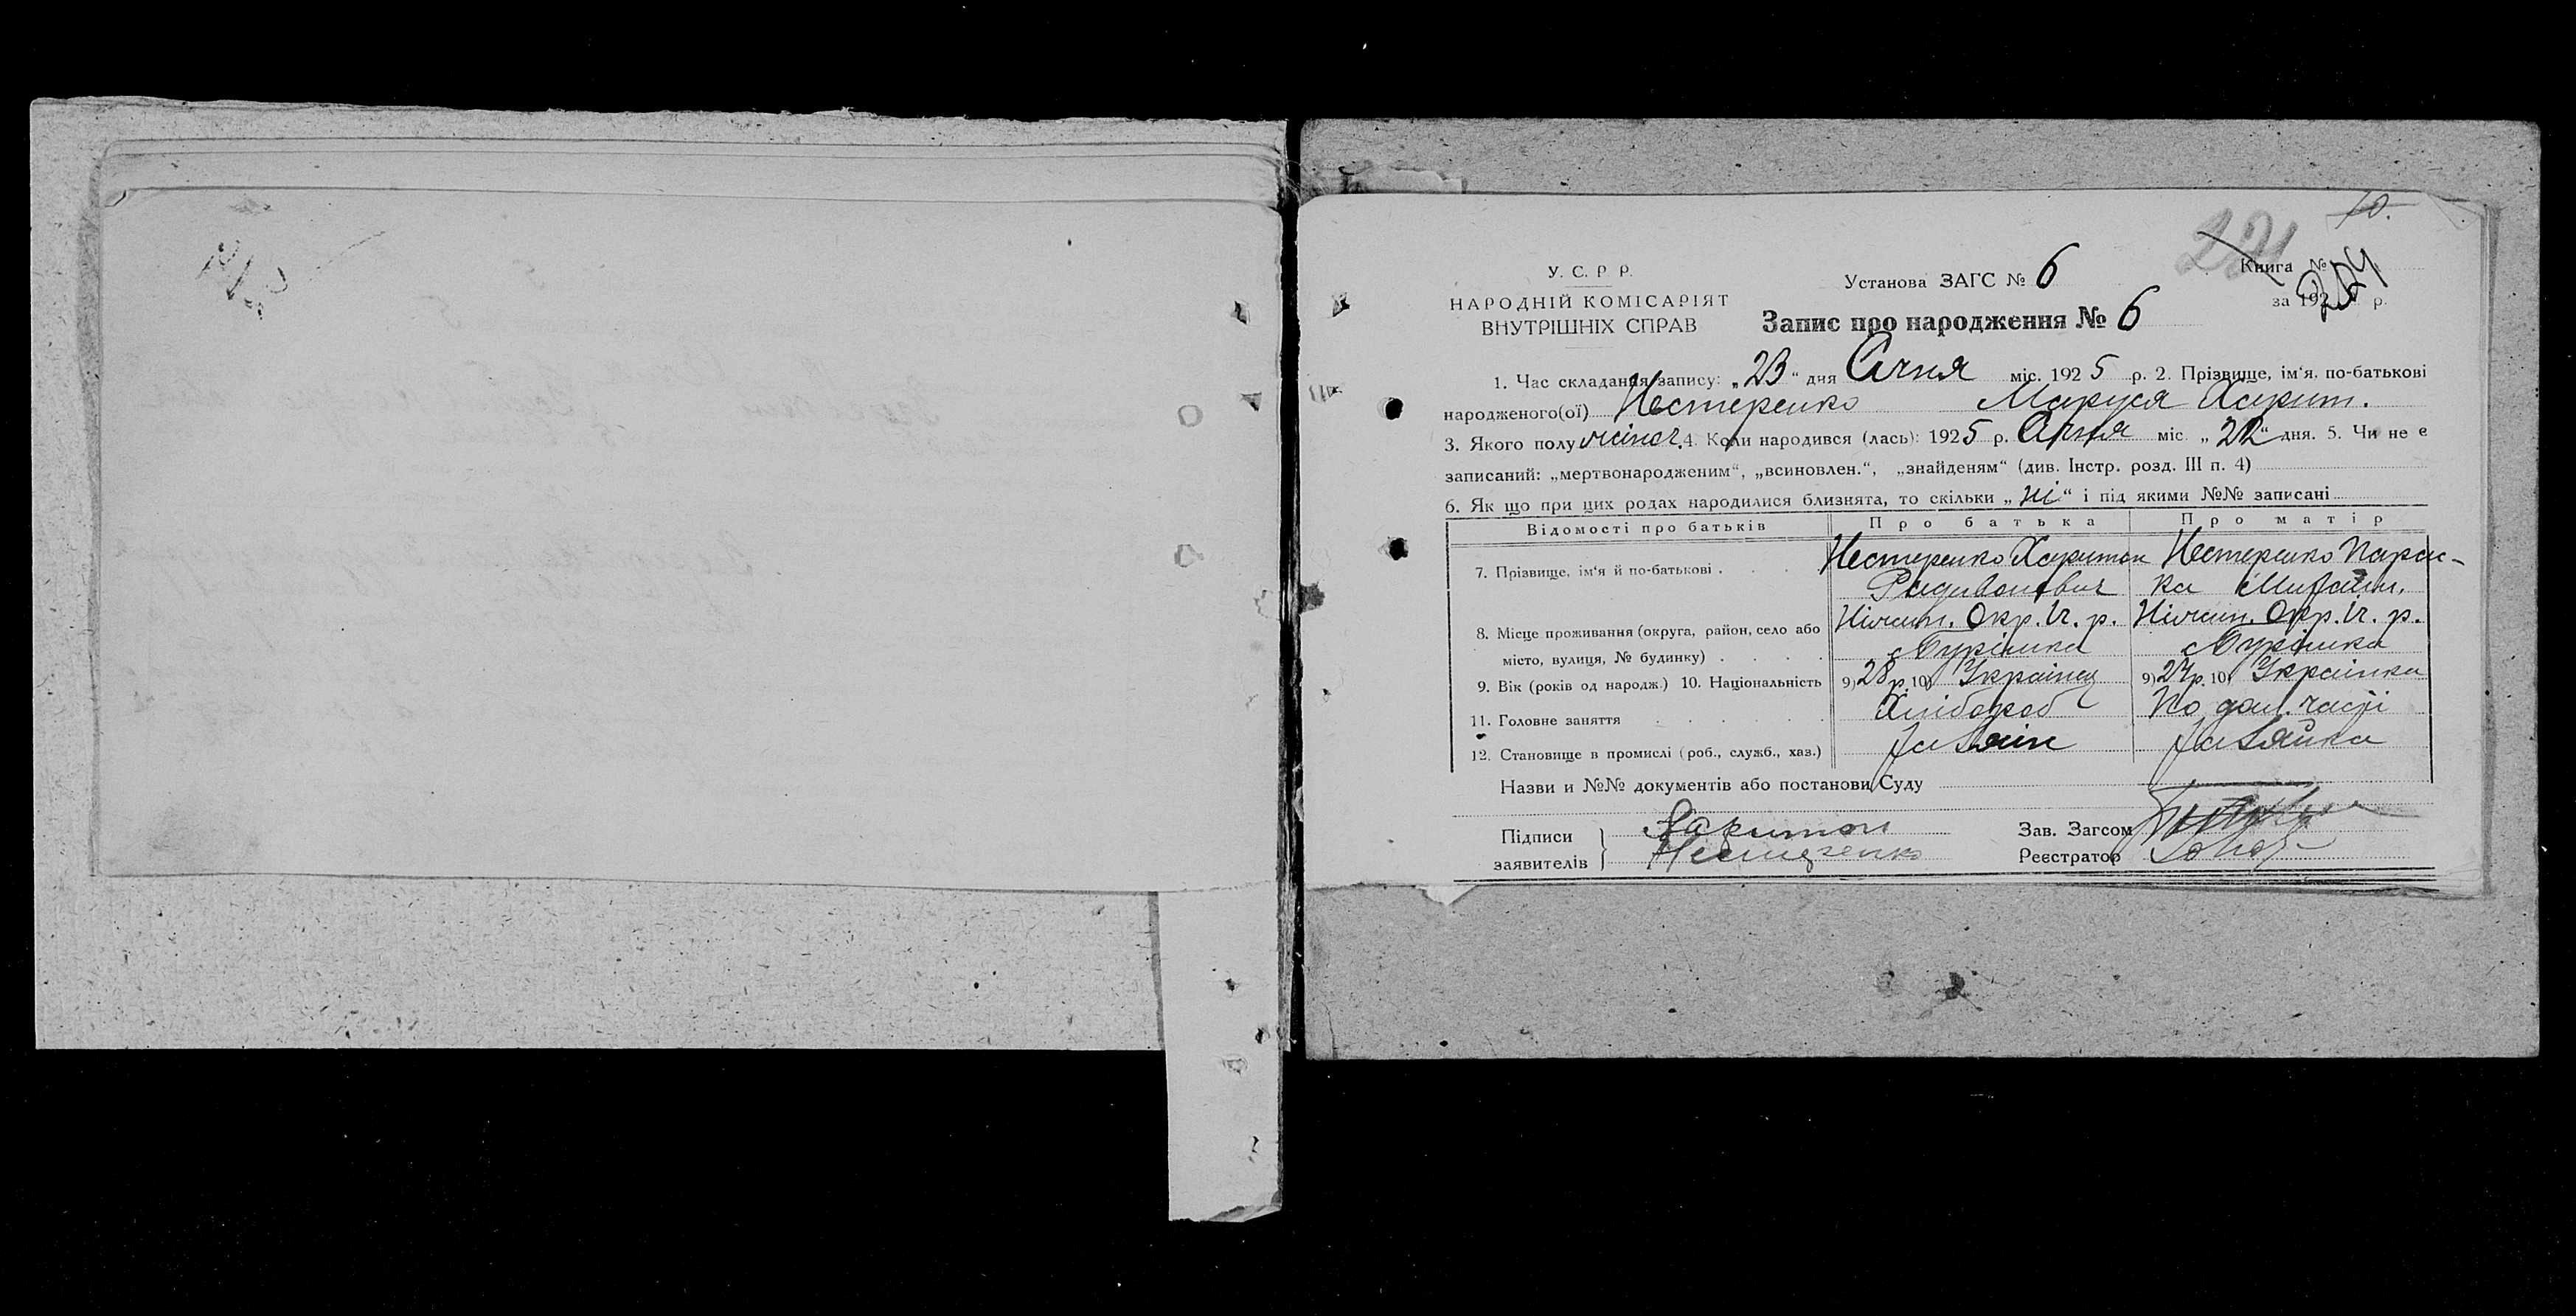 10.
221
У. С. Р. Р.
НАРОДНІЙ КОМІСАРІЯТ
ВНУТРІШНІХ СПРАВ
Установа ЗАГС № 6
Книга №
за 192 р.
Запис про народження № 6
1. Час складання запису: „23“ дня Січня міс. 1925 р. 2. Прізвище, ім‘я, по-батькові
народженого(ої) Нестеренко Маруся Харит.
3. Якого полу жіноч. 4. Коли народився (лась): 1925 р. Січня міс. „22“ дня. 5. Чи не є
записаний: „мертвонародженим“, „всиновлен.“, „знайденям“ (див. Інстр. розд. III п. 4)
6. Як що при цих родах народилися близнята, то скільки „ні“ і під якими №№ записані
Відомості про батьків Про батька Про матір
7. Прізвище, ім‘я й по-батькові . Нестеренко Харитон Нестеренко Парас-
Радивонович ка Михайл.
8. Місце проживання (округа, район, село або Ніжин. Окр. Іч. р. Ніжин. Окр. Іч. р.
місто, вулиця, № будинку)
9. Вік (років од народж.) 10. Національність 9) 28 р. 10) Українец 9) 27 р. 10) Українка
11. Головне заняття Хлібороб По дом. часті
12. Становище в промислі (роб., служб., хаз.) Хазяїн Хазяйка
Назви и №№ документів або постанови Суду
Підписи Харитон Зав. Загсом
заявителів Нестеренко Реєстратор